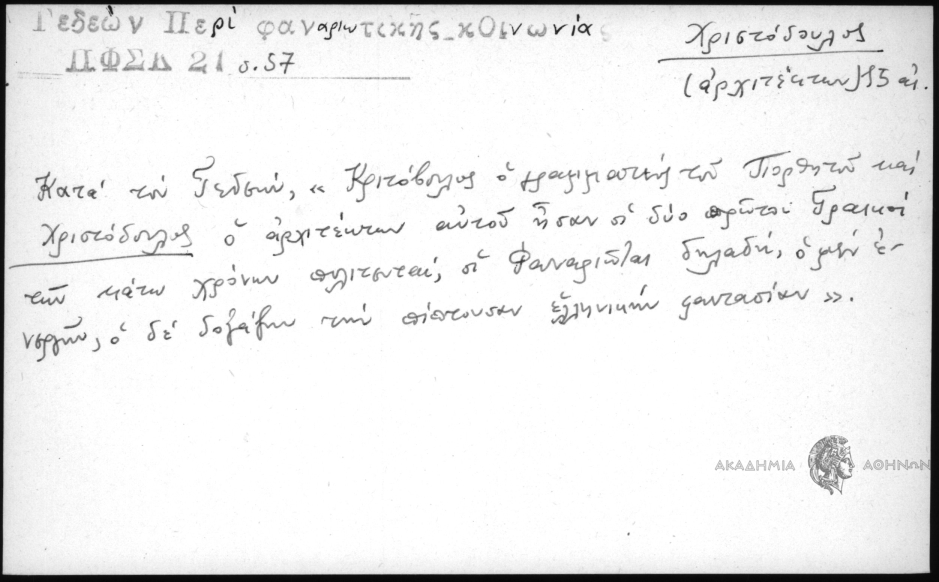 Γεδεὼν Περί φαναριωτικῆς κοινωνίας
ΠΦΣΛ 21 σ. 57
Χριστόδουλος
(ἀρχιτέκτων) 15 αἰ.
Κατά τὸν Γεδεών, « Κριτόβουλος ὁ γραμματεύς τοῦ Πορθητοῦ καί
Χριστόδουλος ὁ ἀρχιτέκτων αὐτοῦ ἦσαν οἱ δύο πρῶτοι Γραικοί
τῶν κάτω χρόνων πολιτευταί, οἱ Φαναριῶται δηλαδή, ὁ μέν ἐ-
νεργῶν, ὁ δέ δοξάζων τήν πίπτουσαν ἑλληνικήν φαντασίαν ».
ΑΚΑΔΗΜΙΑ ΑΘΗΝΩΝ